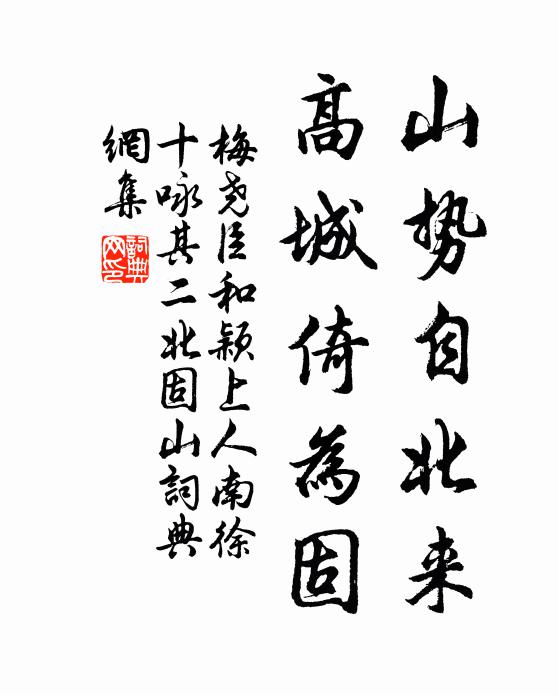 山势自北来
高城倚為固
梅尧臣和颖上人南徐
十咏其二北固山詞典
網集
詞典網印